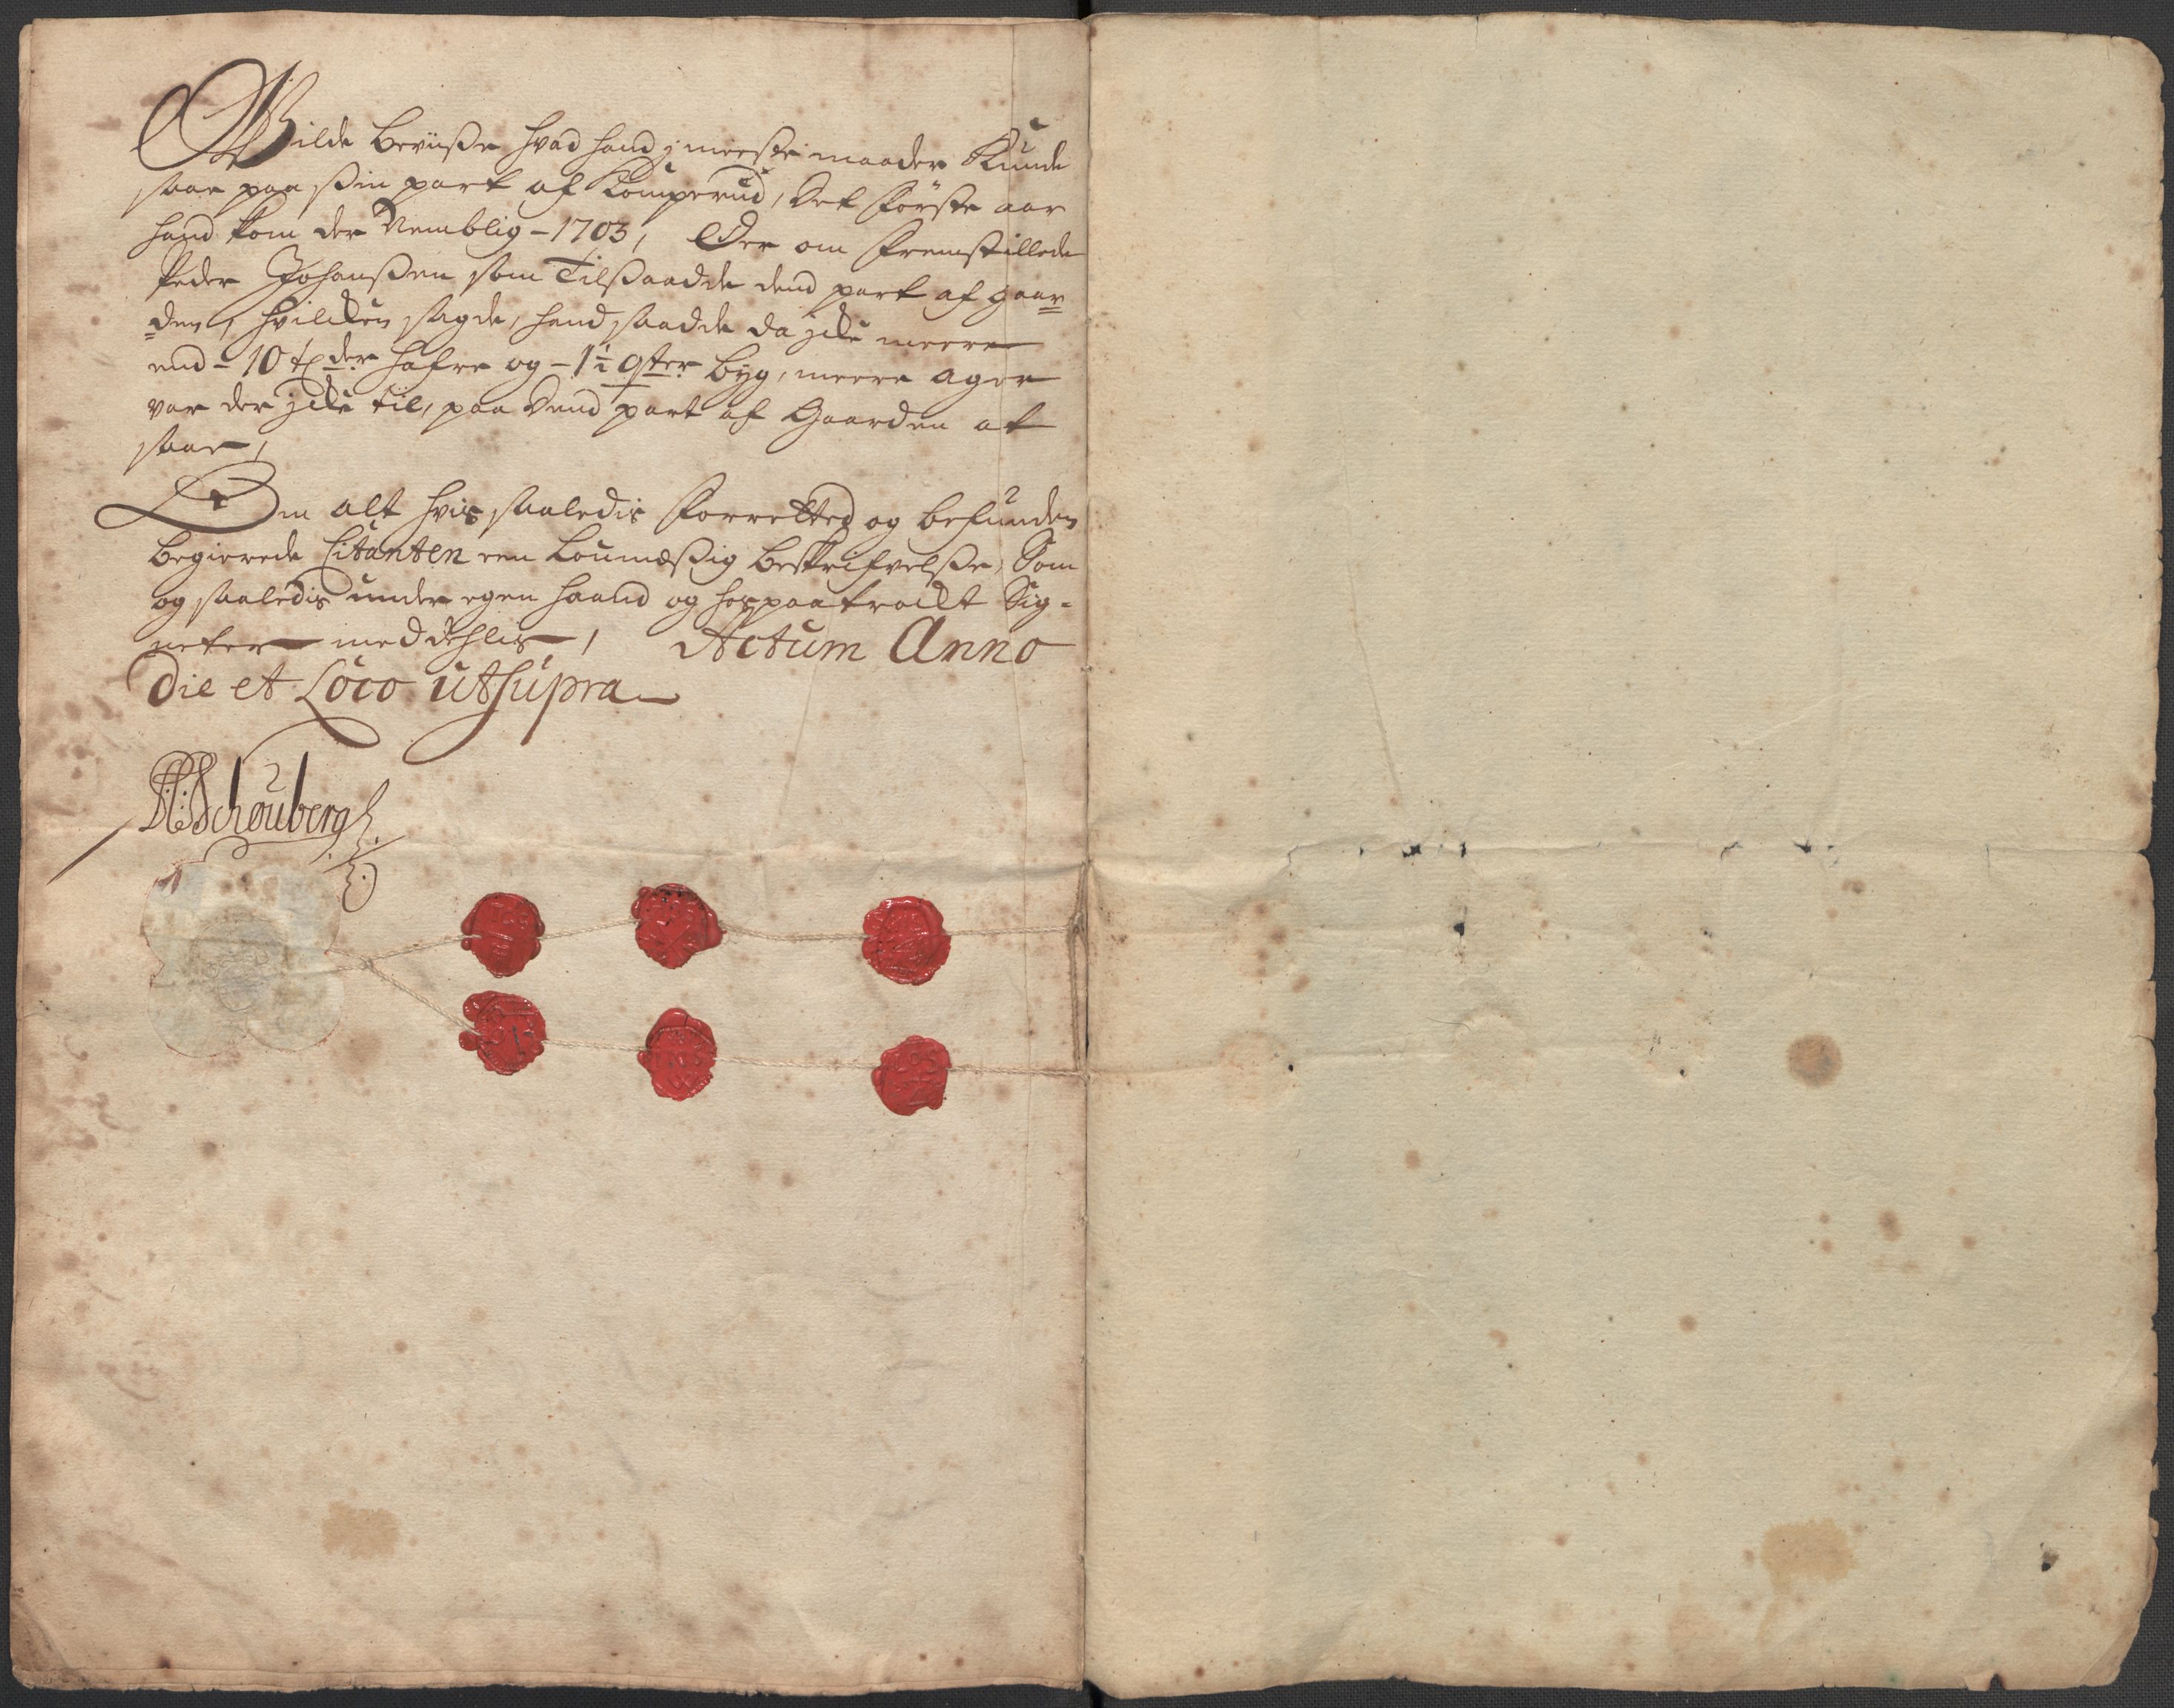 Wilde beviiße hvad hand j meeste maader Kunde
saae paa ßin part af Komperud, Det første aar
hand kom der Nemblig - 1703, Der om fremstillede
Peder Johanßen som Tilsaadde dend part af gaar=
=den, hvilcken sagde, hand saadde da jcke meere
end - 10 t: der hafre og - 1½ qter byg, meere ager
var der jcke til, paa dend part af Gaarden at
saae,
Om alt hvis saaledis forretted og befunden
begierede Citanten een Loumæßig beskrifvelße, Som
og saaledis under egen haand og hospaatrockt Sig-
neter meddehlis, Actum Anno
die et Loco ut supra
Schouberg